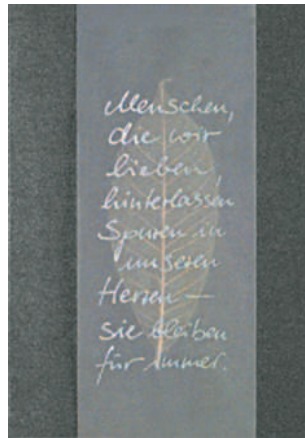 Menschen,
die wir
lieben,
hinterlassen
Spuren in
unseren
Herzen –
sie bleiben
für immer.